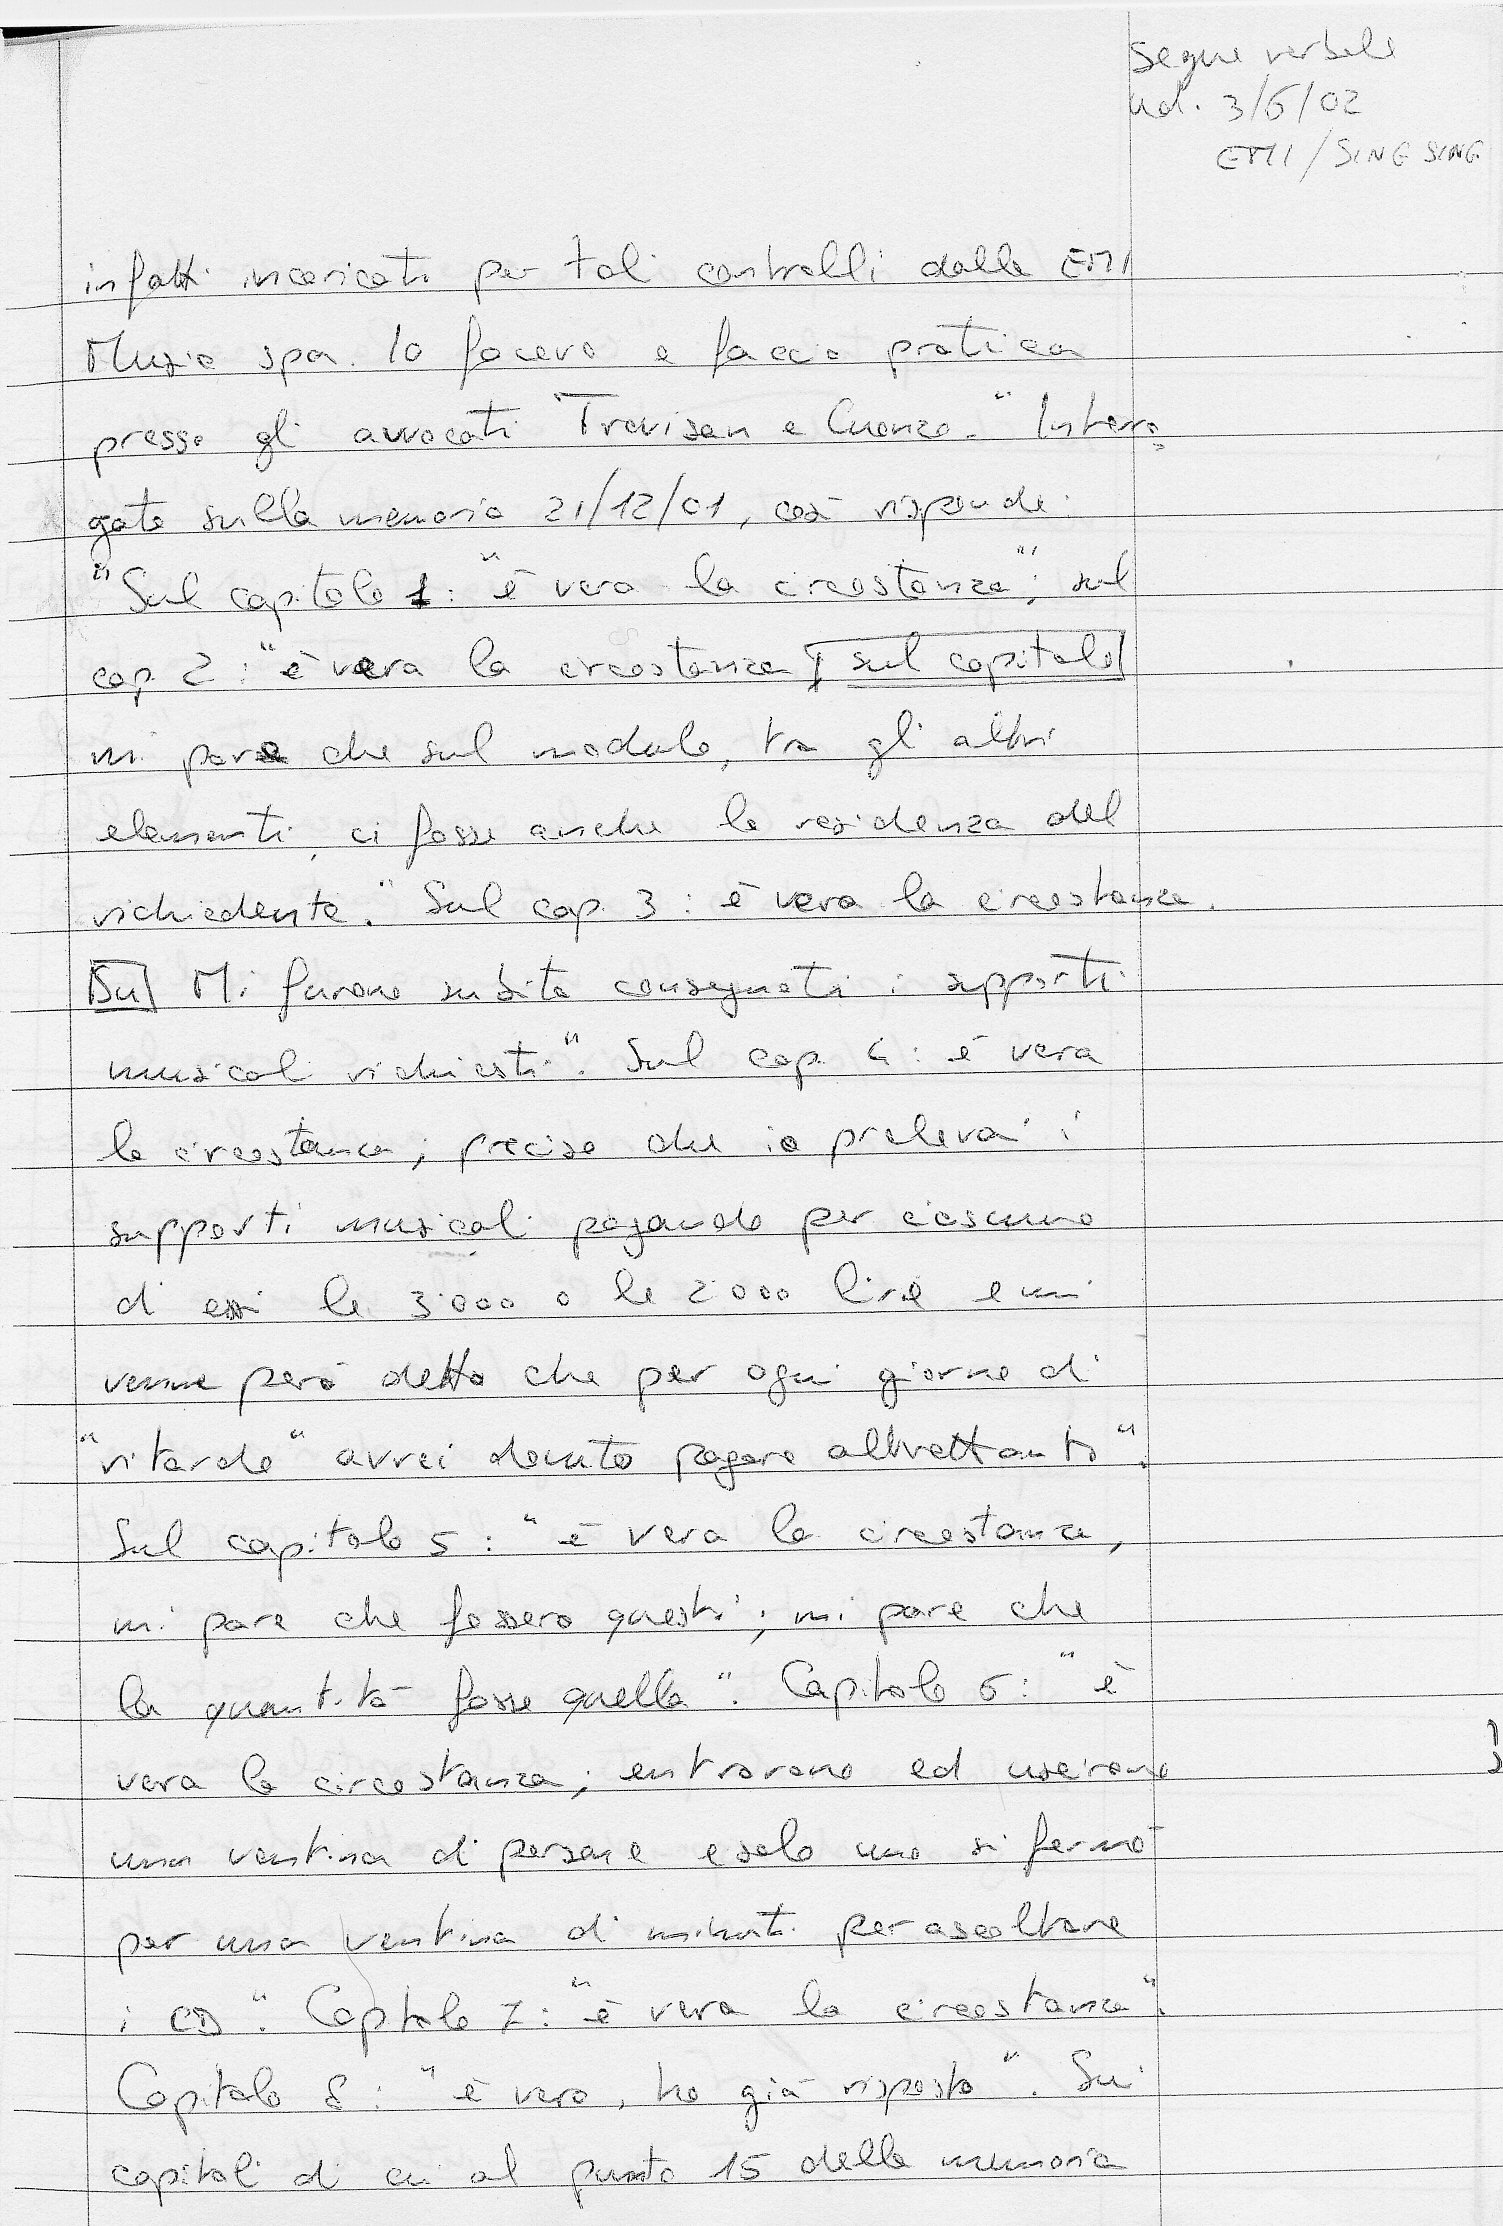 Segue verbale
ud. 3/6/02
EMI / SING SING
infatti incaricato per tali controlli dalla EMI
Music spa. Io facevo e faccio pratica
presso gli avvocati Trevisan e Cuonzo." Interro=
gato sulla memoria 21/12/01, così risponde:
"Sul capitolo 1: "è vera la circostanza"; sul
cap. 2: "è vera la circostanza; sul capitolo
mi pare che sul modulo, tra gli altri
elementi, ci fosse anche la residenza del
richiedente." Sul cap. 3: è vera la circostanza.
Sul Mi furono subito consegnati i supporti
musicali richiesti". Sul cap. 4: è vera
la circostanza; preciso che io prelevai i
supporti musicali pagando per ciascuno
di essi le 3.000 o le 2.000 lire e mi
venne però detto che per ogni giorno di
"ritardo" avrei dovuto pagare altrettanto".
Sul capitolo 5: "è vera la circostanza,
mi pare che fossero questi; mi pare che
la quantità fosse quella". Capitolo 6: "è
vera la circostanza; entrarono ed uscirono
una ventina di persone e solo uno si fermò
per una ventina di minuti per ascoltare
i CD". Capitolo 7: "è vera la circostanza".
Capitolo 8: "è vero, ho già risposto". Sui
capitoli di cui al punto 15 della memoria